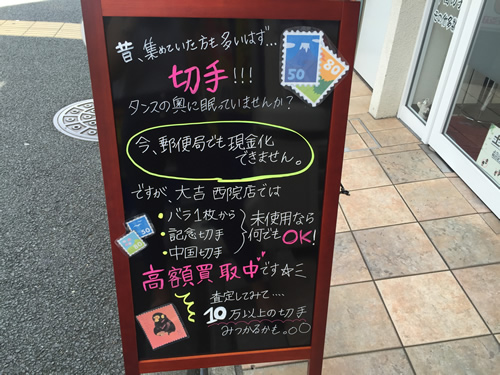 昔、集めていた方も多いはず…
切手!!!
タンスの奥に眠っていませんか?
今、郵便局でも現金化
できません。
ですが、大吉 西院店では
・バラ1枚から
・記念切手
・中国切手
未使用なら
何でもOK!
高額買取中です☆ミ
査定してみて....
10万以上の切手
みつかるかも。○○
50
80
50